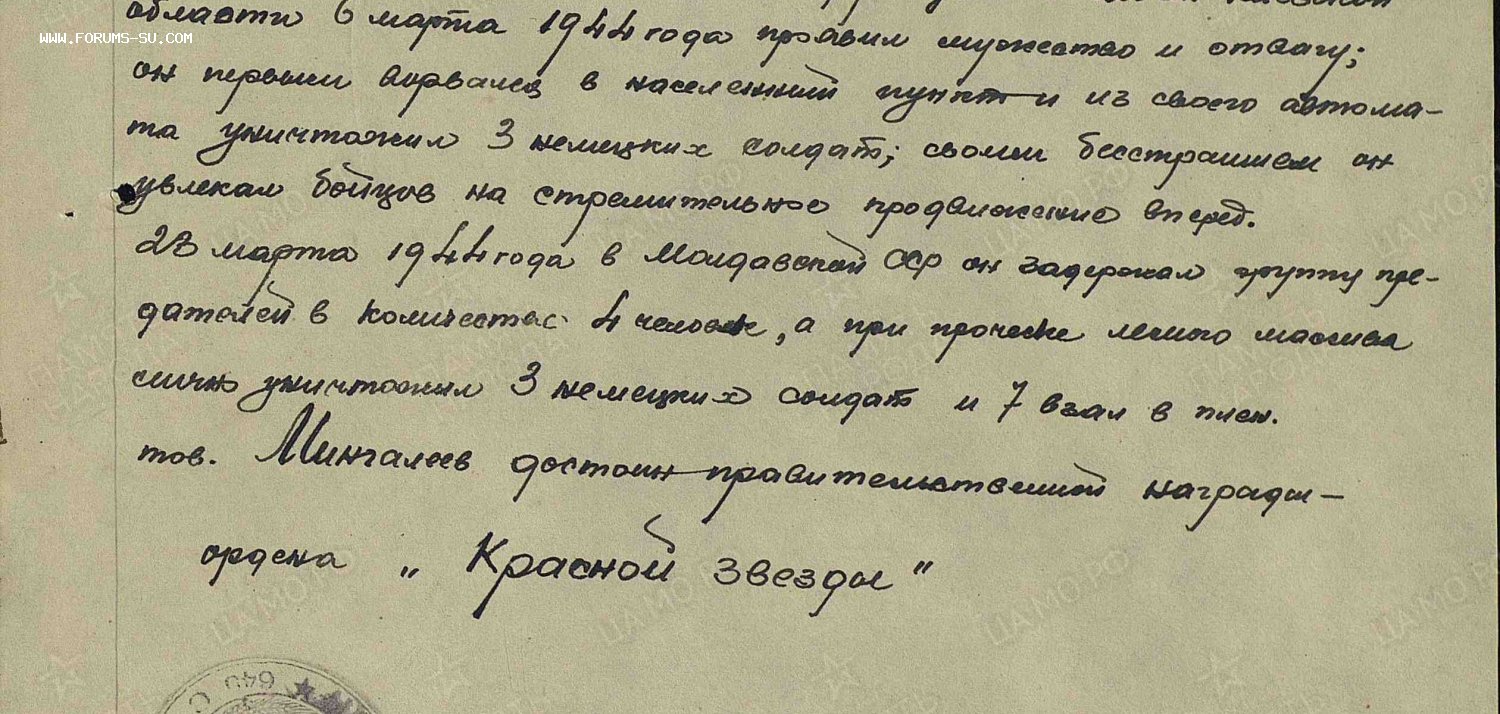 области 6 марта 1944 года проявил мужество и отвагу;
WWW.FORUMS-SU.COM
он первым ворвался в населенный пункт и из своего автома-
та уничтожил 3 немецких солдат; своим бесстрашием он
увлекал бойцов на стремительное продвижение вперед.
марта 1944 года в Молдавской ССР он задержал группу пре-
дателей в количестве 4 человек, а при прочёске лесного массива
лично уничтожил 3 немецких солдат и 7 взял в плен.
тов. Мингалеев достоин правительственной награды —
ордена „Красной Звезды"
640